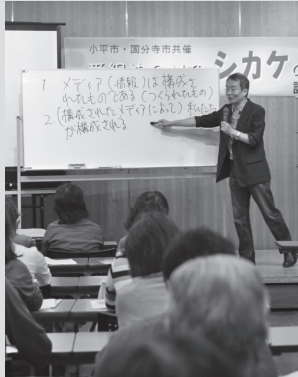 小平市・国分寺市共催
シカケの
1. メディア(情報)は構成さ
れたものである(つくられたもの)
2. (構成されたメディアによって)私たち
が構成される